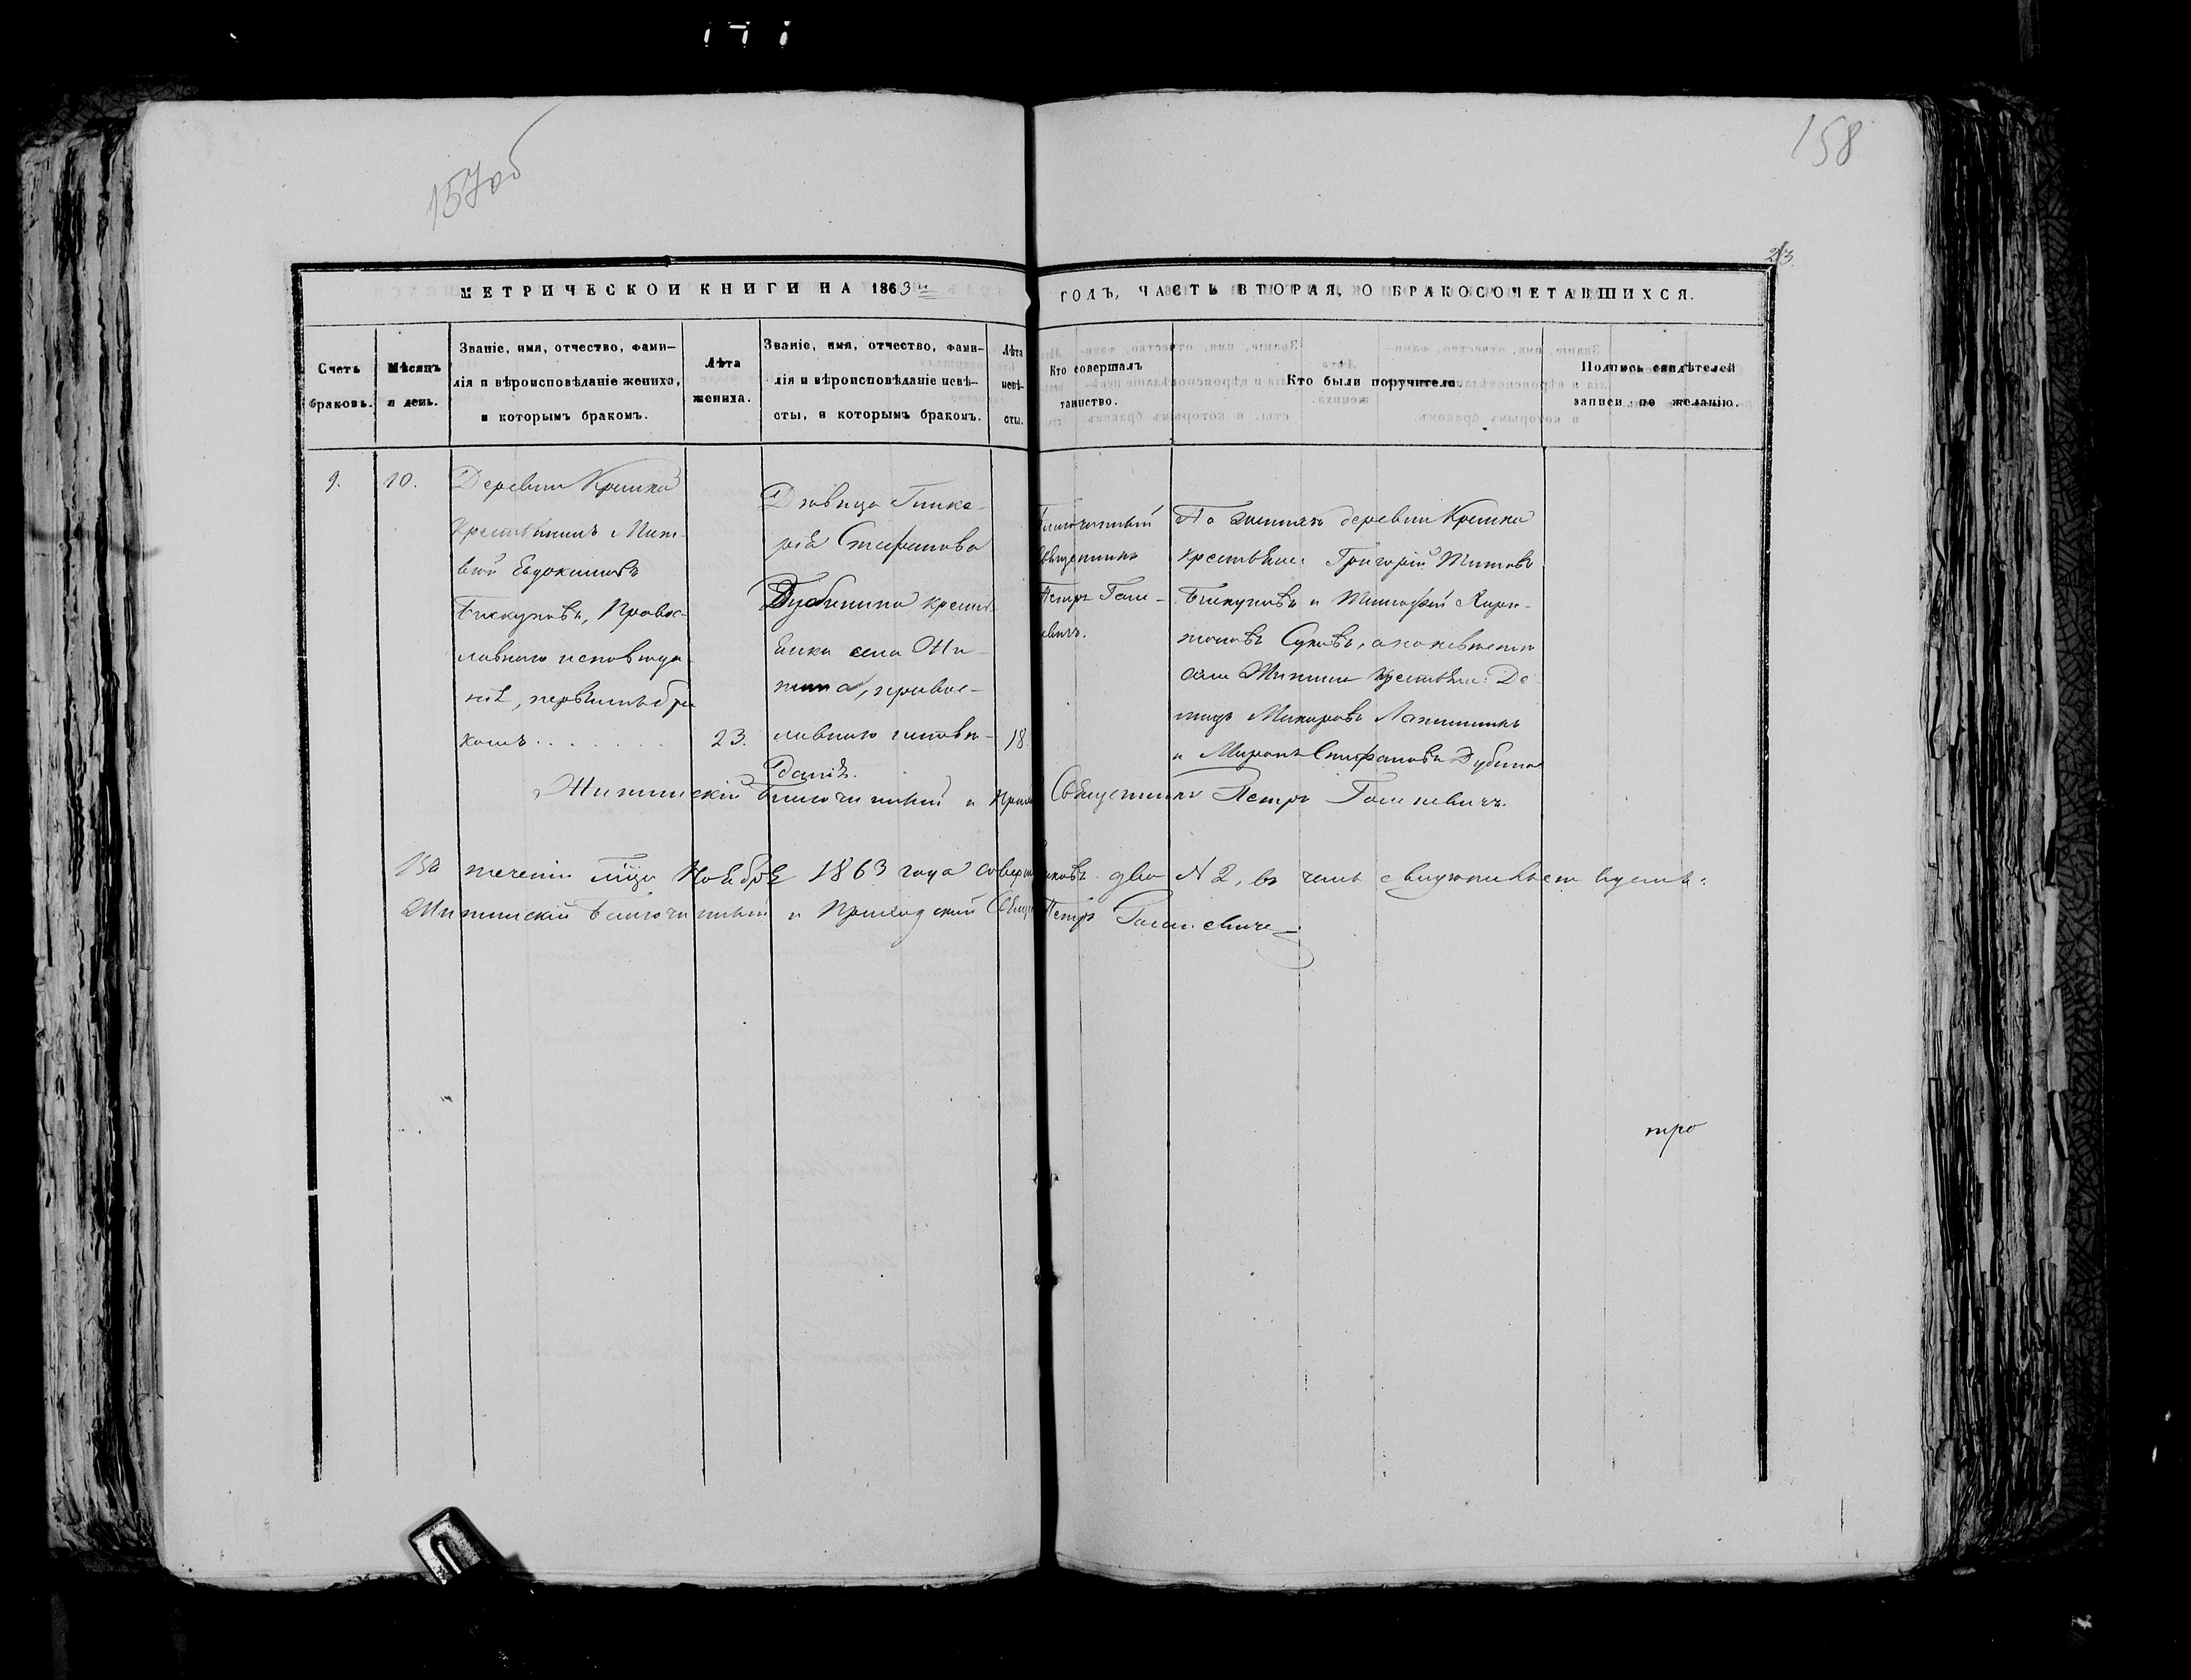 157об
158
23.
МЕТРИЧЕСКОЙ КНИГИ НА 1863й
ГОДЪ, ЧАСТЬ ВТОРАЯ, О БРАКОСОЧЕТАВШИХСЯ.
Счетъ браковъ.
Мѣсяцъ и день.
Званіе, имя, отчество, фами-
лія и вѣроисповѣданіе жениха,
и которымъ бракомъ.
Лѣта
жениха.
Званіе, имя, отчество, фами-
лія и вѣроисповѣданіе невѣ-
сты, и которымъ бракомъ.
Лѣта
невѣ-
сты.
Кто совершалъ
таинство.
Кто были поручители.
Подпись свидѣтелей
записи по желанію.
9.
10.
Деревни
Крестьянинъ Мат-
вѣй Евдокимовъ
Пискуновъ, Правос-
лавнаго исповѣда-
нія, первымъ бра
комъ . . . . . . .
23.
Дѣвица Глике-
рія Стефанова
Дубинина крестья-
села Жи-
, правос-
лавнаго исповѣ-
данія.
18.
Благочинный
Священникъ
Петръ
евичъ.
По женихѣ деревни
крестьяне: Григорій Титовъ
Пискуновъ и Тимофей Хари-
тоновъ Суковъ, а по невѣстѣ
села крестьяне: Де-
мидъ Макаровъ
и Миронъ Стефановъ Дубина
Благочинный и Прих Священникъ Петръ
Въ теченіи мца Ноября 1863 года соверш браковъ два № 2, въ чемъ свидѣтельствуемъ:
Благочинный и Приходскій Свящ Петръ
тро